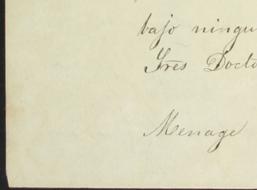 bajo ningu
Tres Docto
Menage